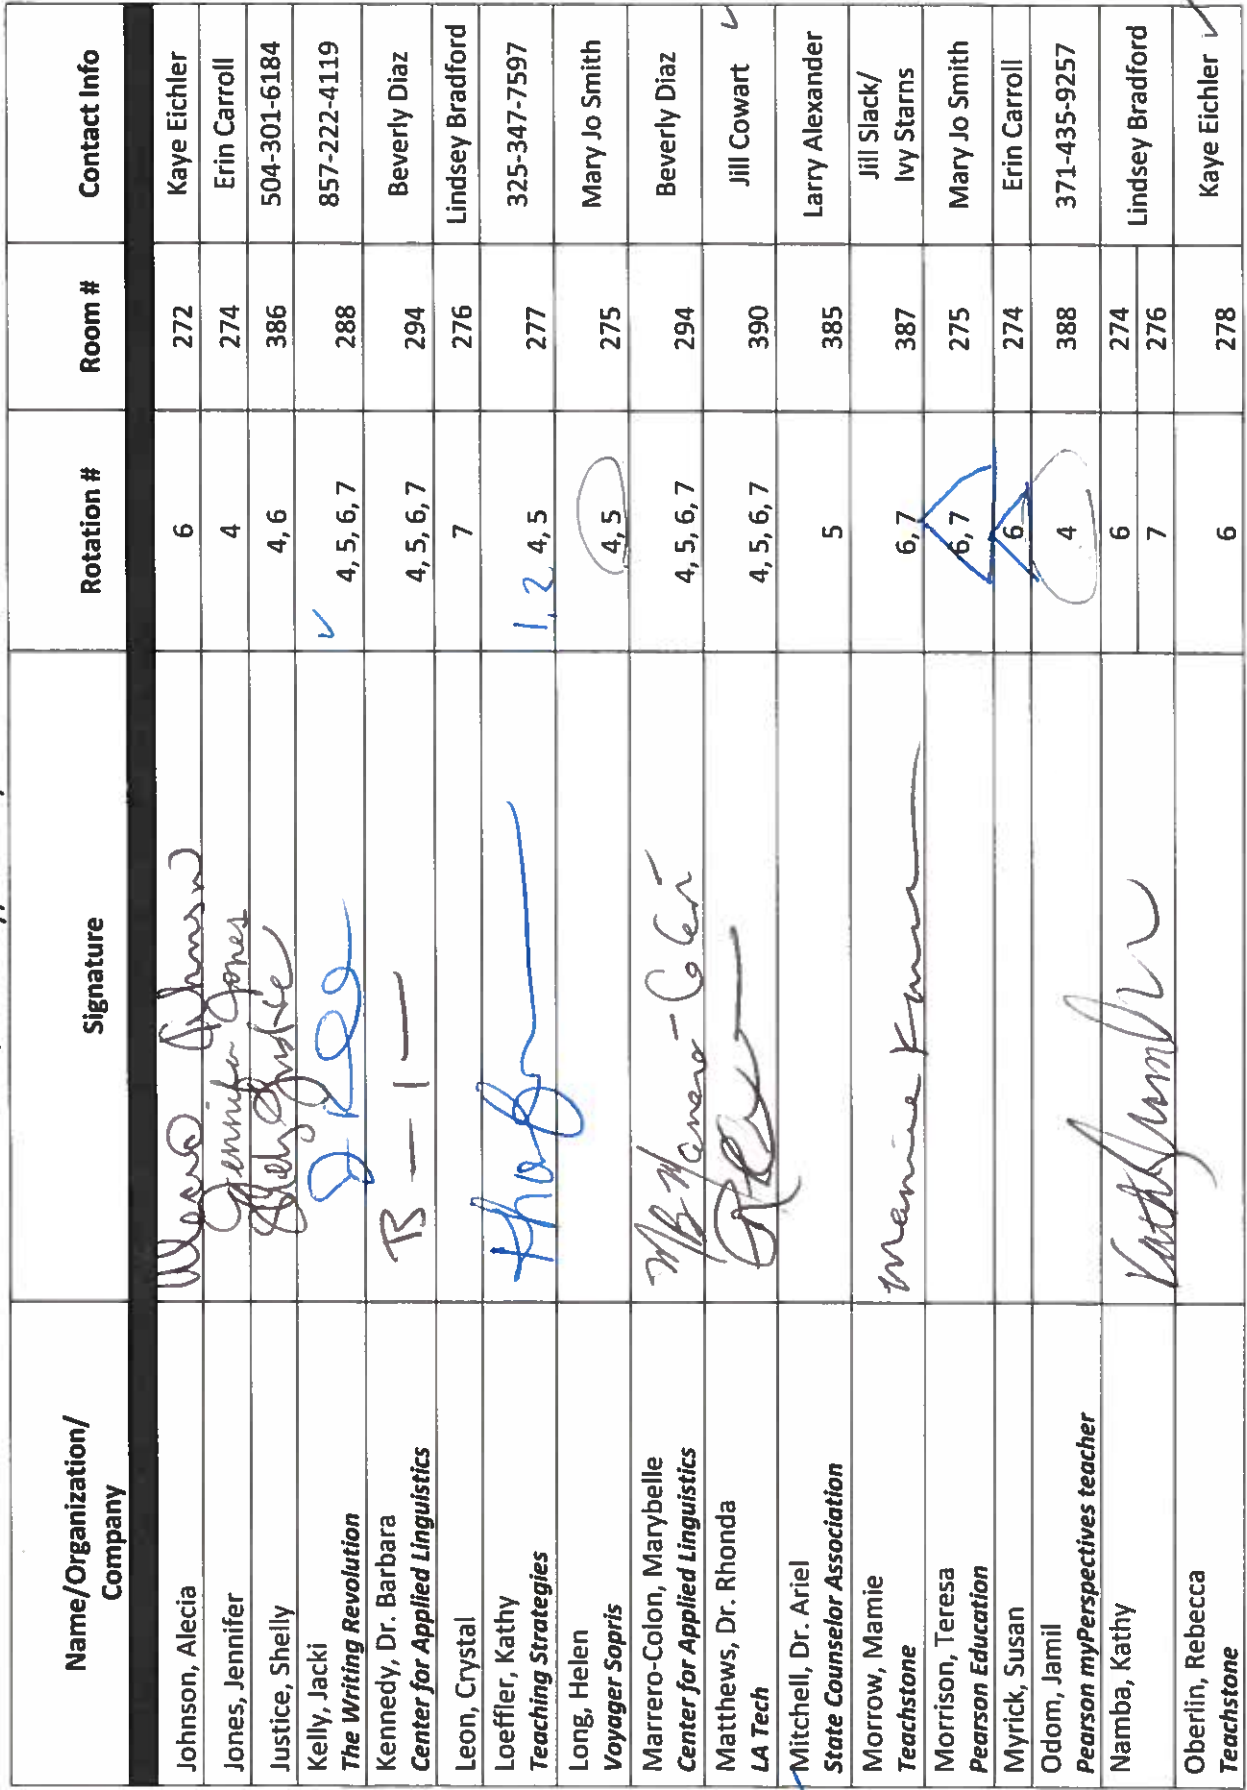 Name/Organization/
Company
Signature
Rotation #
Room #
Contact Info
Johnson, Alecia
Alecia Johnson
6
272
Kaye Eichler
Jones, Jennifer
Jennifer Jones
4
274
Erin Carroll
Justice, Shelly
Shelly Justice
4, 6
386
504-301-6184
Kelly, Jacki
The Writing Revolution
4, 5, 6, 7
288
857-222-4119
Kennedy, Dr. Barbara
Center for Applied Linguistics
4, 5, 6, 7
294
Beverly Diaz
Leon, Crystal
7
276
Lindsey Bradford
Loeffler, Kathy
Teaching Strategies
1, 2, 4, 5
277
325-347-7597
Long, Helen
Voyager Sopris
4, 5
275
Mary Jo Smith
Marrero-Colon, Marybelle
Center for Applied Linguistics
4, 5, 6, 7
294
Beverly Diaz
Matthews, Dr. Rhonda
LA Tech
4, 5, 6, 7
390
Jill Cowart
Mitchell, Dr. Ariel
State Counselor Association
5
385
Larry Alexander
Morrow, Mamie
Teachstone
6, 7
387
Jill Slack/
Ivy Starns
Morrison, Teresa
Pearson Education
6, 7
275
Mary Jo Smith
Myrick, Susan
6
274
Erin Carroll
Odom, Jamil
Pearson myPerspectives teacher
4
388
371-435-9257
Namba, Kathy
Kathy Namba
6
274
7
276
Lindsey Bradford
Oberlin, Rebecca
Teachstone
6
278
Kaye Eichler